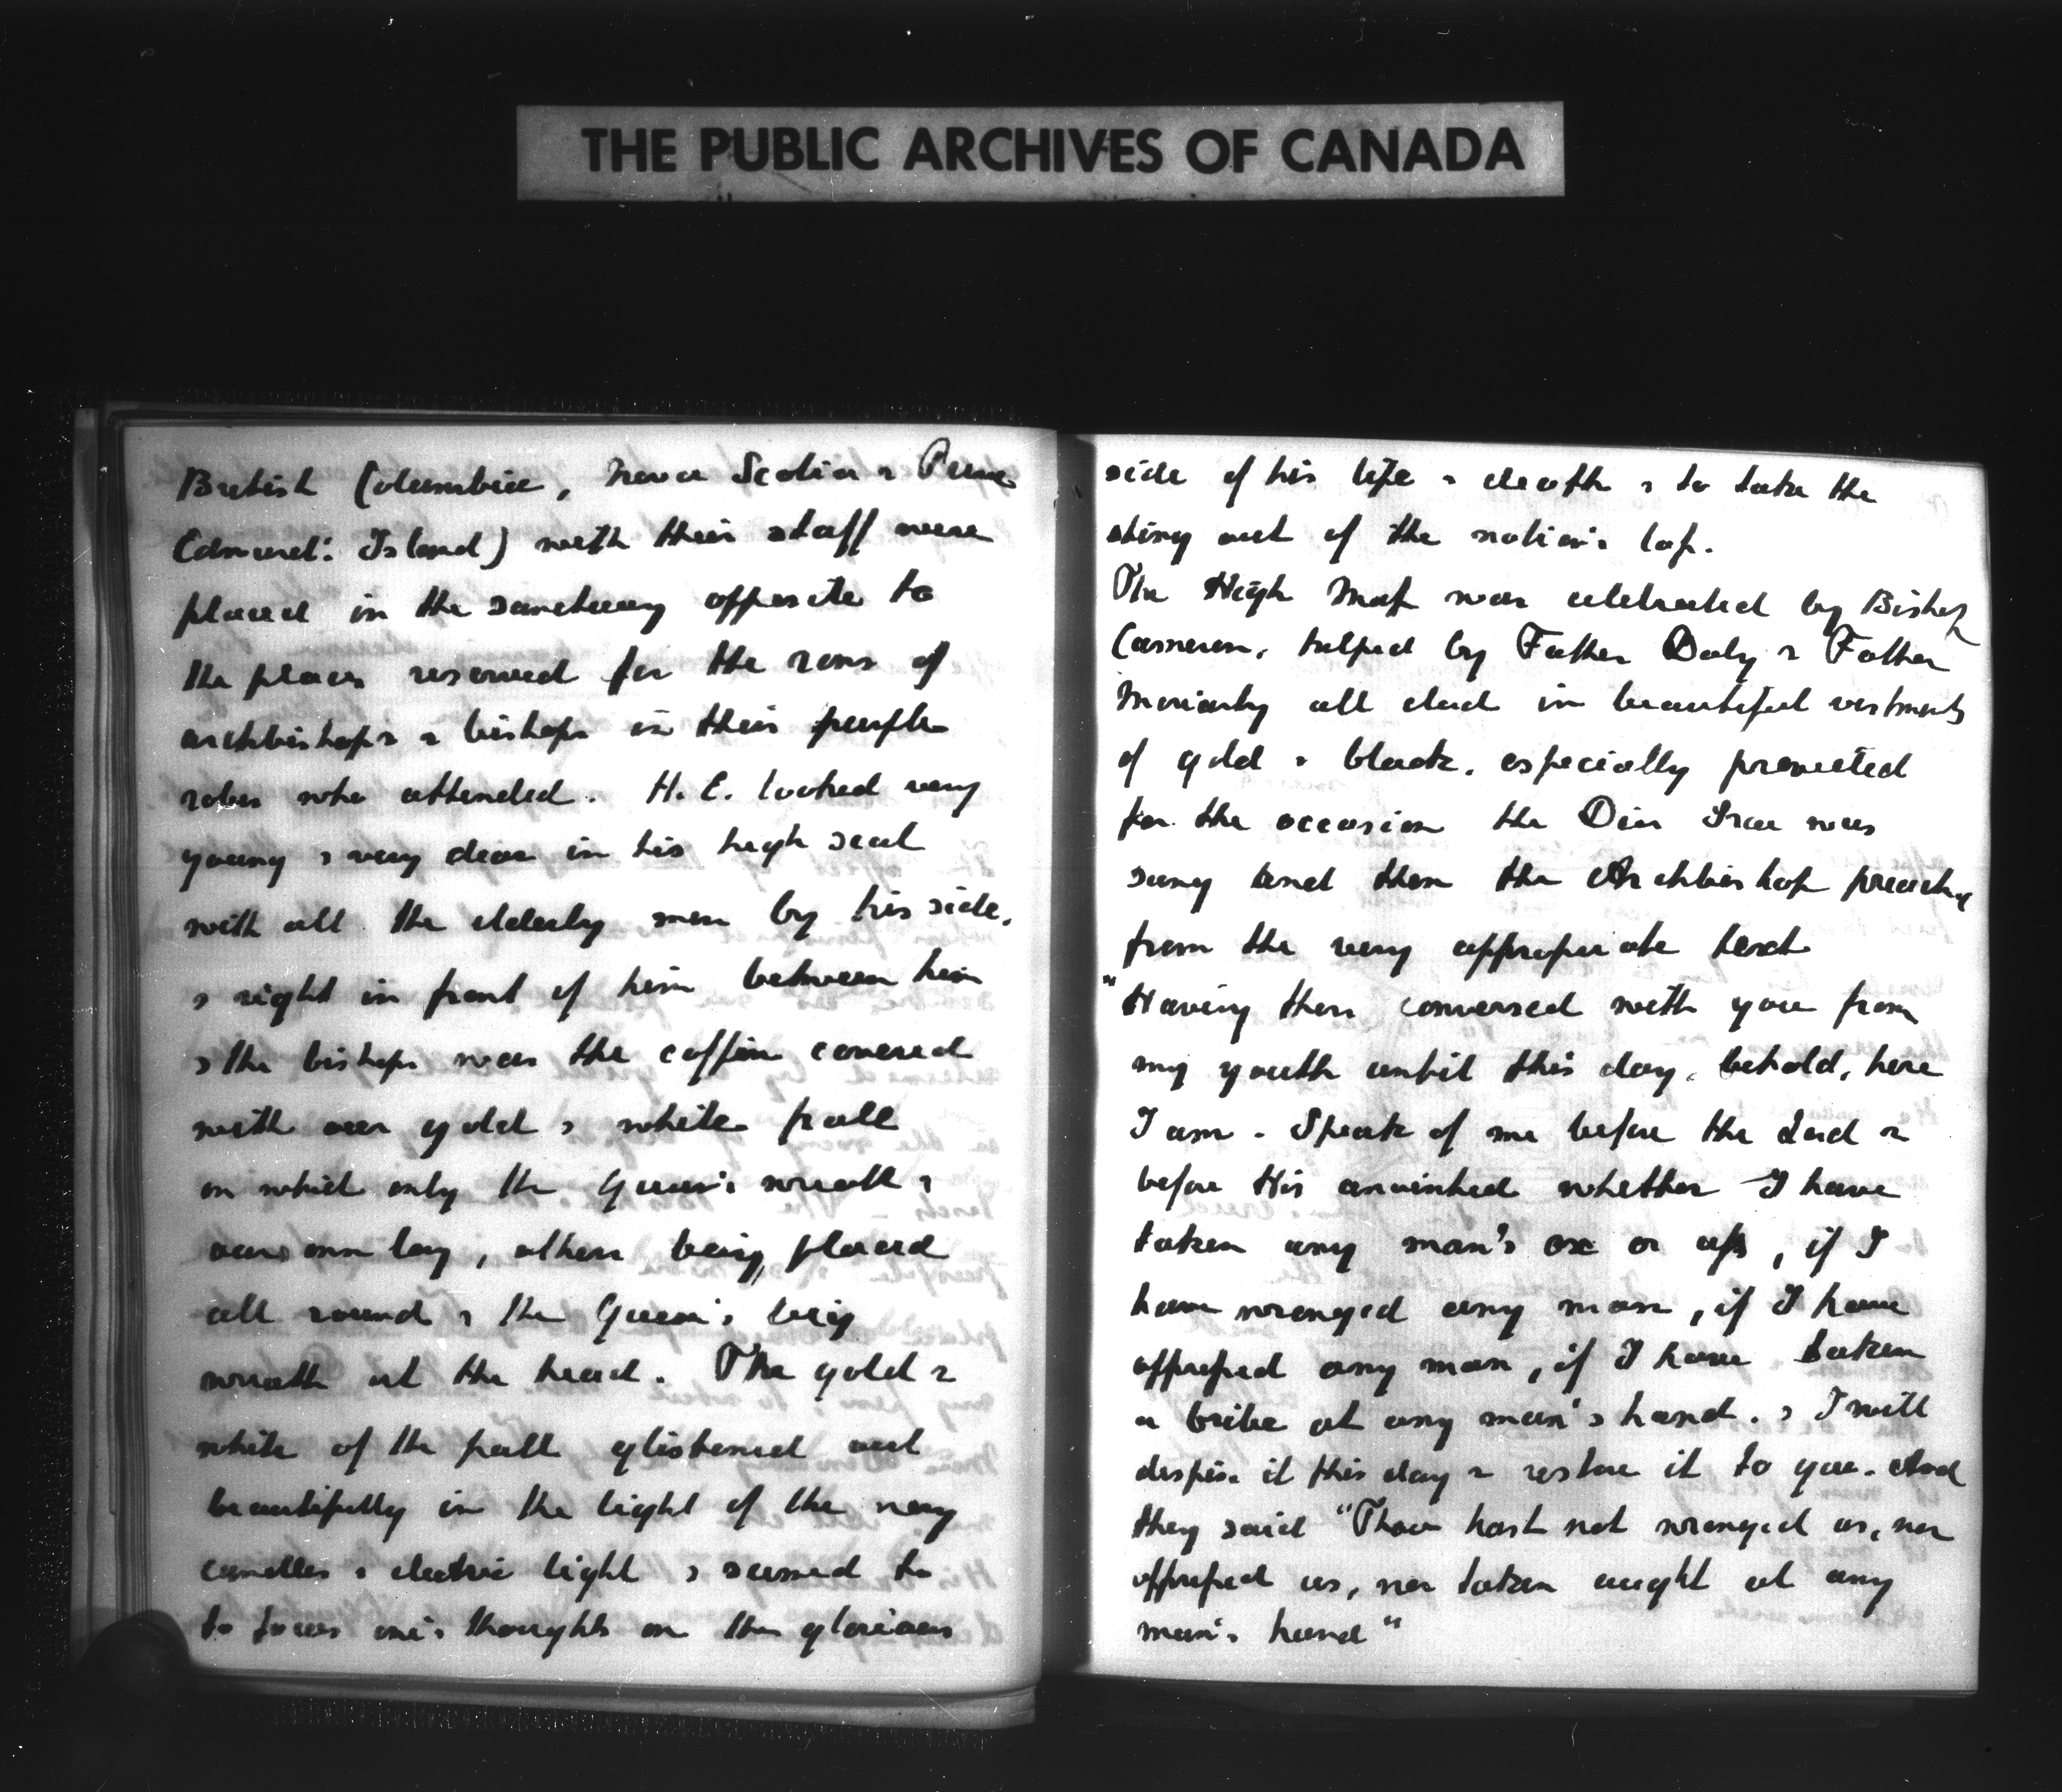 THE PUBLIC ARCHIVES OF CANADA
British Columbia, Nova Scotia & Prince
Edward: Island) with their staff were
placed in the sanctuary opposite to
the places reserved for the rows of
archbishops & bishops in their purple
robes who attended. H. E. looked very
young & very dear in his high seat
with all the elderly men by his side,
& right in front of him between him
& the bishops was the coffin covered
with our gold & white pall
on which only the Queen's wreath &
our own lay, others being placed
all round & the Queen's big
wreath at the head. The gold &
white of the pall glistened out
beautifully in the light of the many
candles & electric light & seemed to
to focus one's thoughts on the glorious
side of his life & death & to take the
sting out of the nation's loss.
The High Mass was celebrated by Bishop
Cameron, helped by Father Daly & Father
Moriarty all clad in beautiful vestments
of gold & black, especially provided
for the occasion the Dies Irae was
sung and then the Archbishop preached
from the very appropriate text
"Having then conversed with you from
my youth until this day, behold, here
I am. Speak of me before the Lord &
before His anointed whether I have
taken any man's ox or ass, if I
have wronged any man, if I have
oppressed any man, if I have taken
a bribe at any man's hand. & I will
despise it this day & restore it to you. And
they said "Thou hast not wronged us, nor
oppressed us, nor taken aught at any
man's hand"